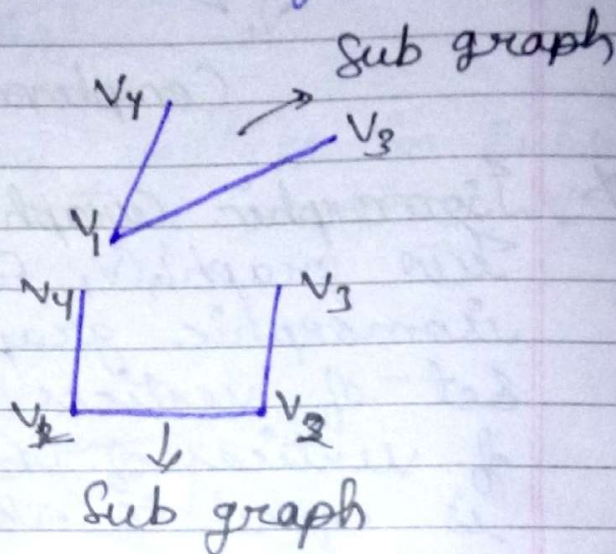 Sub graph
V4
V3
V1
V4
V3
V1
V2
Sub graph